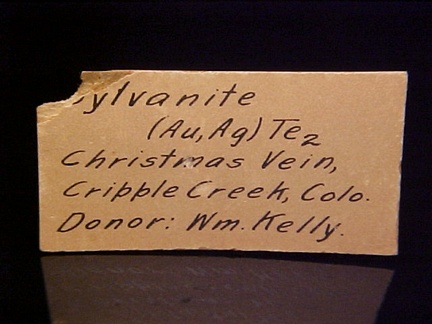 Sylvanite
(Au,Ag)Te₂
Christmas Vein,
Cripple Creek, Colo.
Donor: Wm. Kelly.